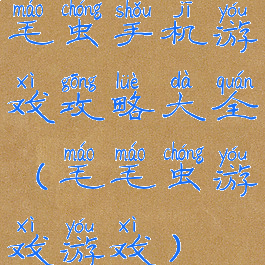 máo chóng shǒu jī yóu
毛虫手机游
xì gōng lüè dà quán
戏攻略大全
máo máo chóng yóu
（毛毛虫游
xì yóu xì
戏游戏）